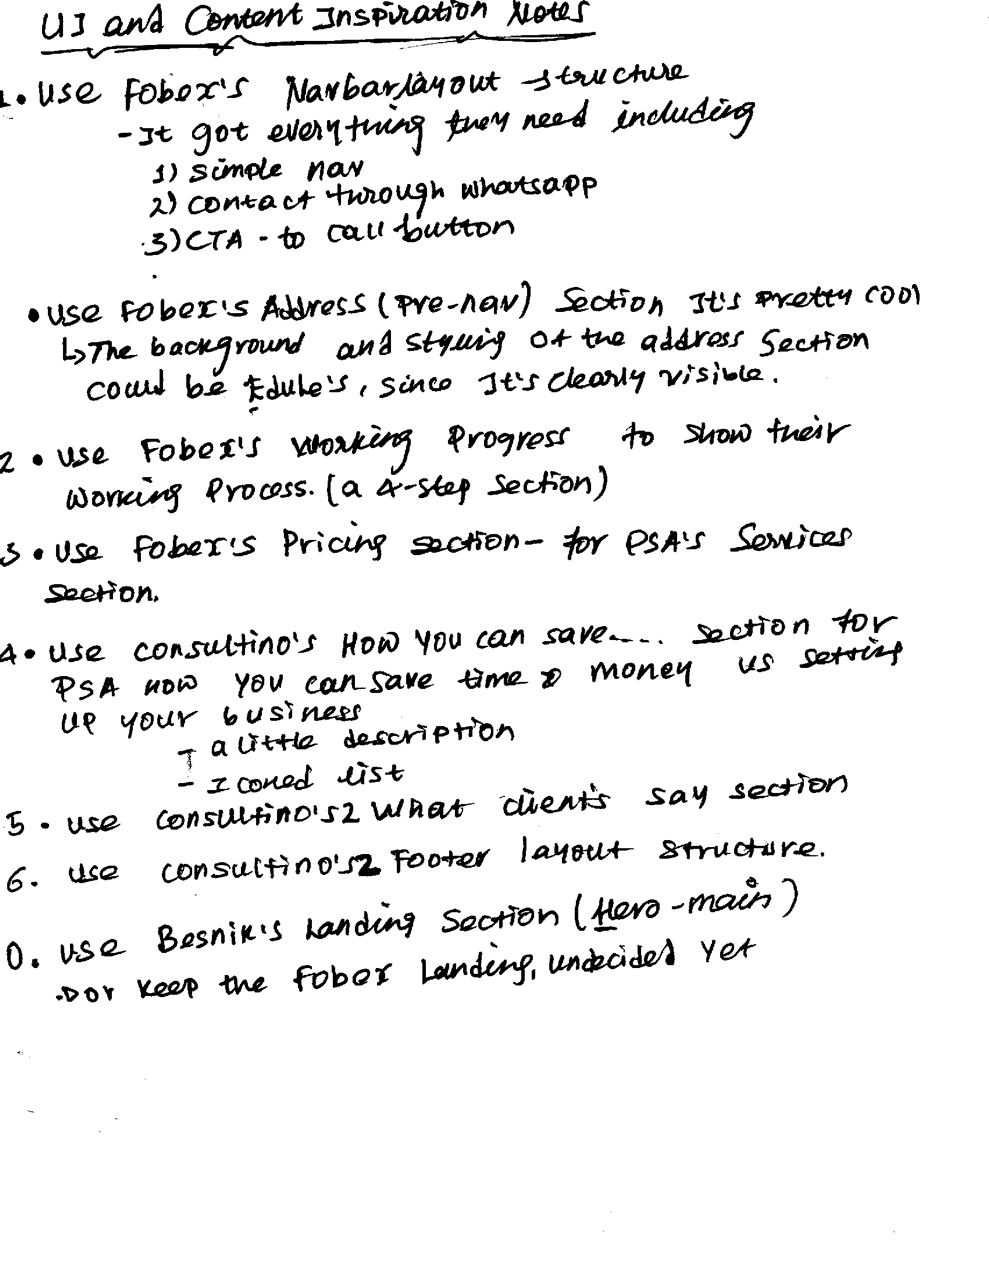 UI and Content Inspiration Notes
1. Use Fobex's Navbar layout structure
- It got everything they need including
1) simple nav
2) contact through whatsapp
3) CTA - to call button
• Use Fobex's Address (Pre-nav) Section It's pretty cool
↳ The background and styling of the address section
could be Edule's, since It's clearly visible.
2 • Use Fobex's Working Progress to show their
Working Process. (a 4-step section)
3 • Use Fobex's Pricing section - for PSA's Services
section.
4 • Use consultino's How You can save.... section for
PSA how you can save time & money us setting
up your business
- a little description
- Iconed list
5 • use consultino's2 What client's say section
6. use consultino's2 Footer layout structure.
0. use Besnik's Landing Section (Hero-main)
or Keep the fobex Landing, undecided yet